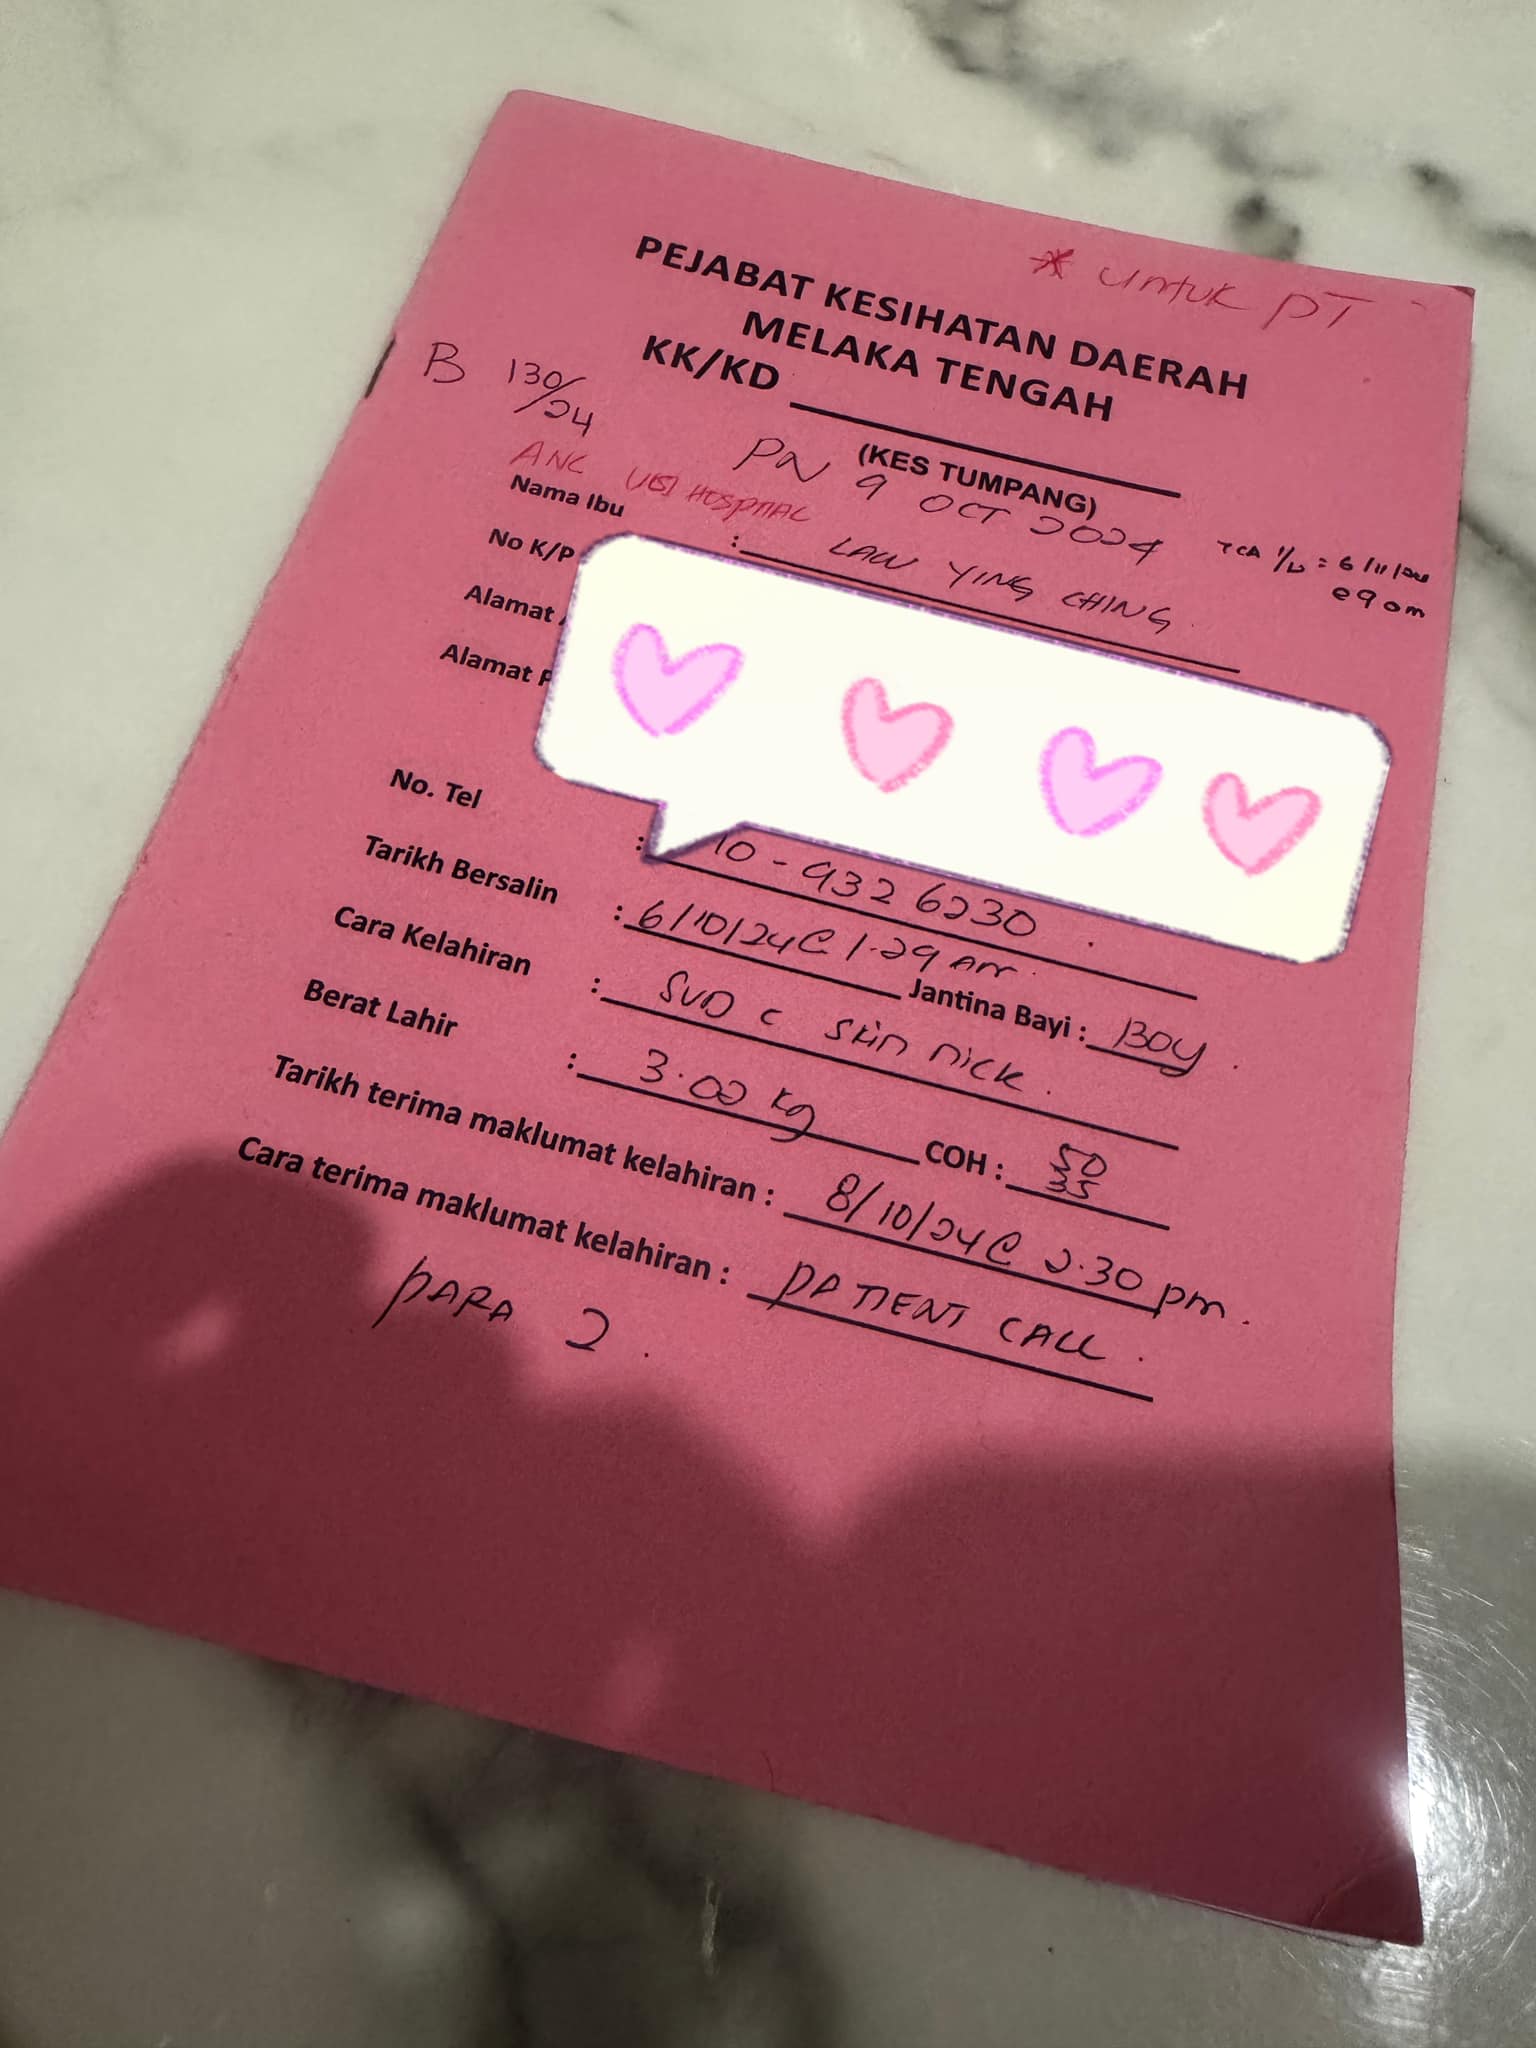 * untuk PT
PEJABAT KESIHATAN DAERAH
MELAKA TENGAH
KK/KD
(KES TUMPANG)
B 130/24
PN 9 OCT 2024
ANC HOSPITAL
TCA 1/12 : 6/11/24
@ 9 am
Nama Ibu : LAW YING CHING
No K/P
Alamat
Alamat P
No. Tel : 10-932 6230
Tarikh Bersalin : 6/10/24 @ 1.29 am Jantina Bayi : Boy
Cara Kelahiran : SVD c skin nick
Berat Lahir : 3.02 kg COH : 50
Tarikh terima maklumat kelahiran : 8/10/24 @ 2.30 pm
Cara terima maklumat kelahiran : PATIENT CALL
PARA 2